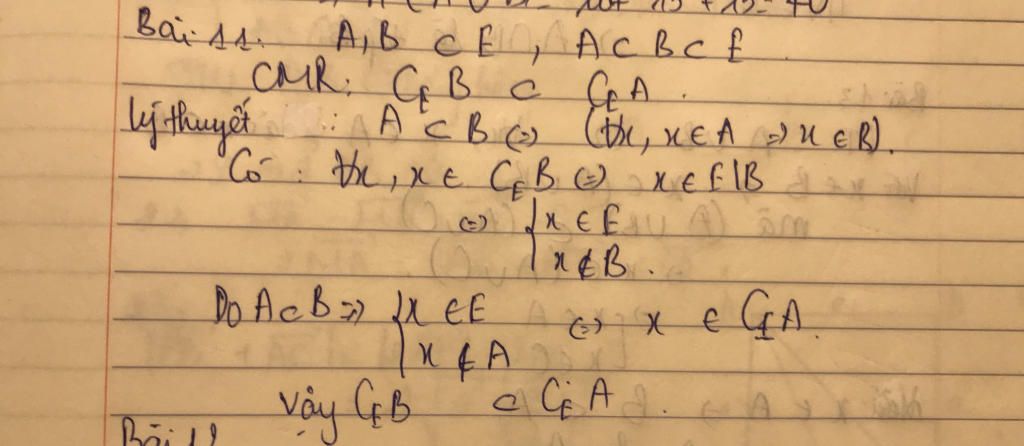 Bài 11: A, B ⊂ E, A ⊂ B ⊂ E
CMR: C_E B ⊂ C_E A.
Lý thuyết: A ⊂ B ⇔ (∀x, x ∈ A ⇒ x ∈ B).
Có: ∀x, x ∈ C_E B ⇔ x ∈ E \ B
⇔ { x ∈ E
x ∉ B.
Do A ⊂ B ⇒ { x ∈ E ⇔ x ∈ C_E A.
x ∉ A
Vậy C_E B ⊂ C_E A.